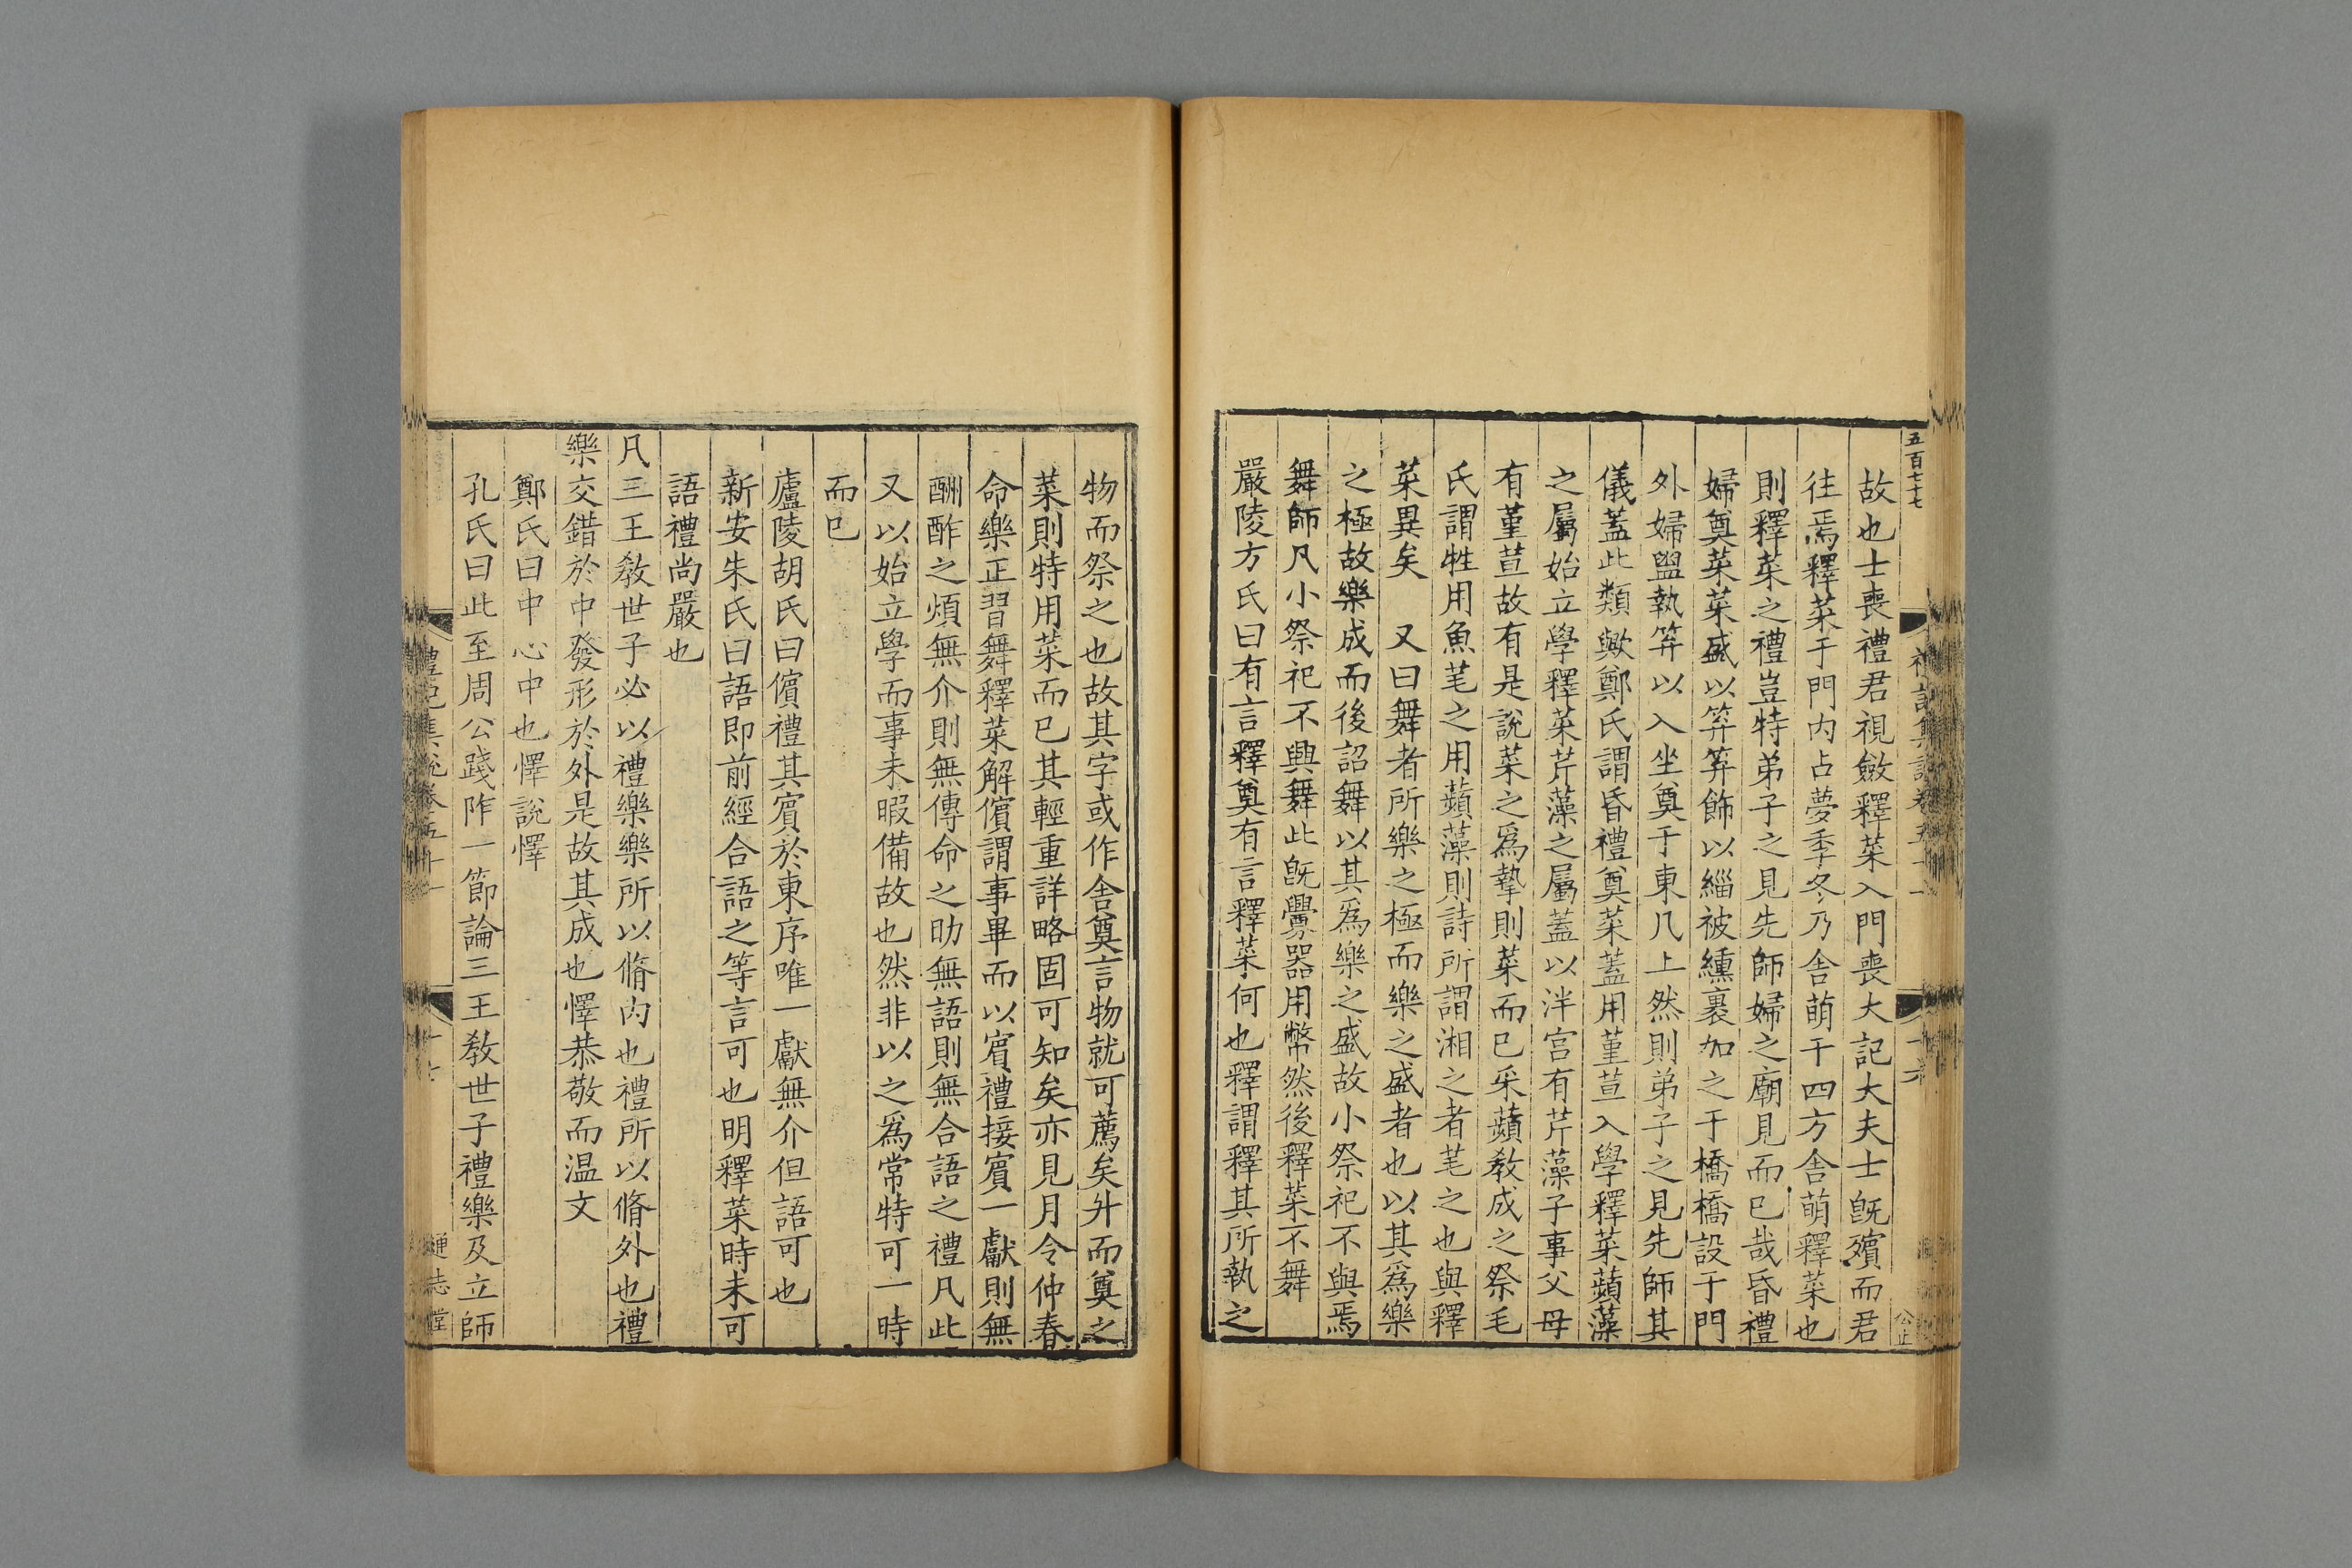 五百七十七
故也士喪禮君視斂釋菜入門喪大記大夫士旣殯而君
往焉釋菜于門内占夢季冬乃舎萌于四方舎萌釋菜也
則釋菜之禮豈特弟子之見先師婦之廟見而已哉昏禮
婦奠菜菜盛以笲笲飾以緇被纁裏加之于橋橋設于門
外婦盥執笲以入坐奠于東几上然則弟子之見先師其
儀蓋此類歟鄭氏謂昏禮奠菜蓋用菫荁入學釋菜蘋藻
之屬始立學釋菜芹藻之屬蓋以泮宫有芹藻子事父母
有菫荁故有是說菜之爲摯則菜而已采蘋敎成之祭毛
氏謂牲用魚芼之用蘋藻則詩所謂湘之者芼之也與釋
菜異矣　又曰舞者所樂之極而樂之盛者也以其爲樂
之極故樂成而後詔舞以其爲樂之盛故小祭祀不與焉
舞師凡小祭祀不興舞此旣釁器用幣然後釋菜不舞
嚴陵方氏曰有言釋奠有言釋菜何也釋謂釋其所執之
公止
物而祭之也故其字或作舎奠言物就可薦矣升而奠之
菜則特用菜而已其輕重詳略固可知矣亦見月令仲春
命樂正習舞釋菜解儐謂事畢而以賓禮接賓一獻則無
酬酢之煩無介則無傳命之助無語則無合語之禮凡此
又以始立學而事未暇備故也然非以之爲常特可一時
而已
廬陵胡氏曰儐禮其賓於東序唯一獻無介但語可也
新安朱氏曰語即前經合語之等言可也明釋菜時未可
語禮尚嚴也
凡三王敎世子必以禮樂樂所以脩内也禮所以脩外也禮
樂交錯於中發形於外是故其成也懌恭敬而温文
鄭氏曰中心中也懌說懌
孔氏曰此至周公踐阼一節論三王敎世子禮樂及立師
禮記集說卷五十一
十七
通志堂